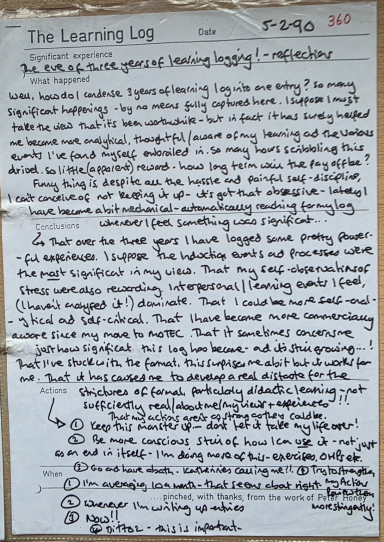 The Learning Log Date 5-2-90 360
Significant experience
The eve of three years of learning logging! - reflections
What happened
Well, how do I condense 3 years of learning log into one entry? So many
significant happenings - by no means fully captured here. I suppose I must
take the view that it's been worthwhile - but in fact it has surely helped
me become more analytical, thoughtful/aware of my learning and the various
events I've found myself embroiled in. So many hours scribbling this
drivel. So little (apparent) reward - how long term will the pay off be?
Funny thing is, despite all the hassle and painful self-discipline,
I can't conceive of not keeping it up - it's got that obsessive - lately I
have become a bit mechanical - automatically reaching for my log
Conclusions whenever I feel something was significant...
That over the three years I have logged some pretty power-
-ful experiences. I suppose the Induction events and processes were
the most significant in my view. That my self-observations of
stress were also rewarding. Interpersonal/learning events I feel,
(I haven't analysed it!) dominate. That I could be more self-anal-
-ytical and self-critical. That I have become more commercially
aware since my move to MOTEC. That it sometimes concerns me
just how significant this log has become - and it's still growing...!
That I've stuck with the format, this surprises me a bit but it works for
me. That it has caused me to develop a real distaste for the
Actions strictures of formal, particularly didactic learning - not
sufficiently real/about me/my views + experiences!!
That my actions aren't as strong as they could be.
① Keep this monster up - don't let it take my life over!
② Be more conscious still of how I can use it - not just
as an end in itself - I'm doing more of this - exercises, OHPs etc.
③ Go and have a bath - Katherine's calling me!! ④ Try to strengthen
When my Action
① I'm averaging 10 a month - that seems about right
② Whenever I'm writing up entries more stringently!
....pinched, with thanks, from the work of Peter Honey
③ Now!!
④ Ditto 2 - this is important.